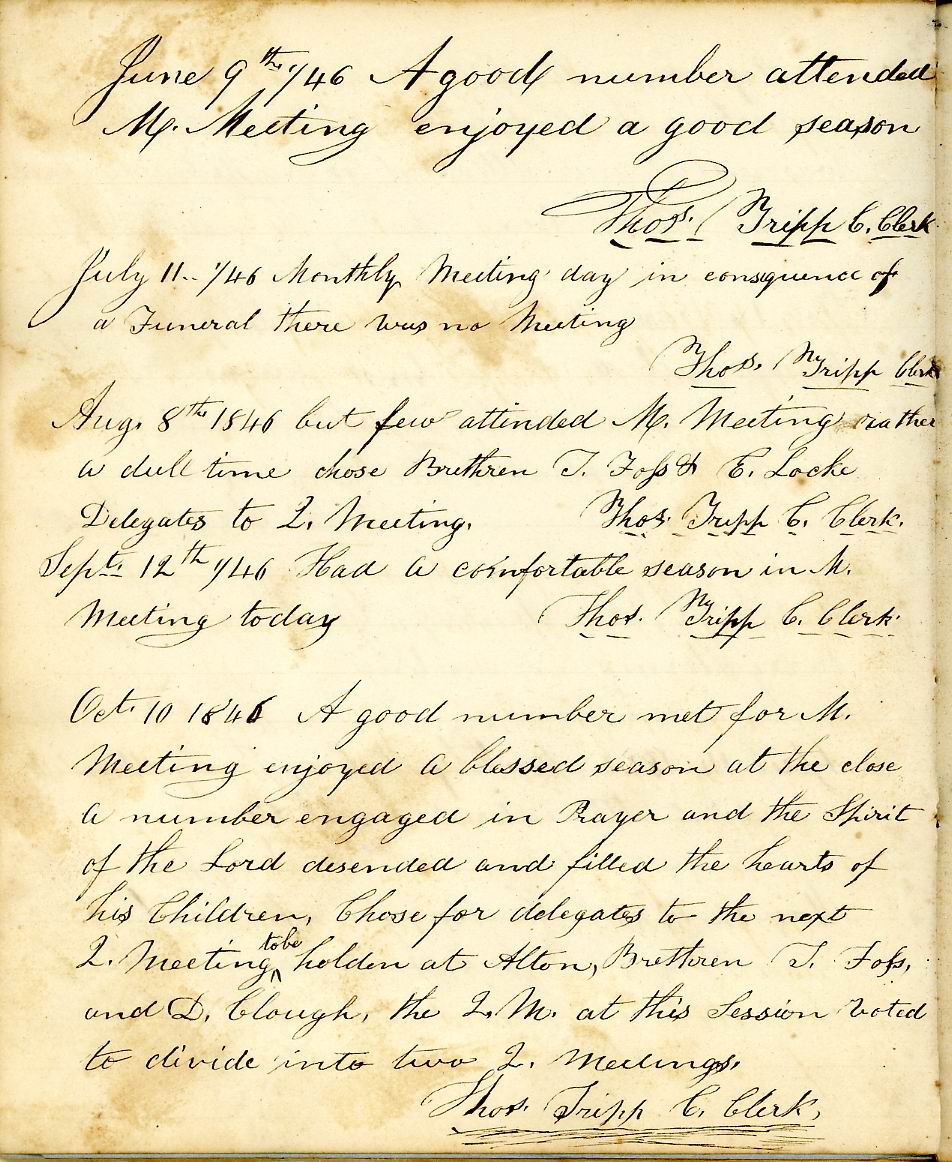 June 9th 1/46 A good number attended
M. Meeting enjoyed a good season
Thos. Tripp C. Clerk
July 11.. 1/46 Monthly Meeting day in consquence of
a Funeral there was no Meeting
Thos. Tripp Clerk
Aug. 8th 1846 but few attended M. Meeting rather
a dull time chose Brethren T. Foss & E. Locke
Delegates to Q. Meeting. Thos. Tripp C. Clerk.
Sept. 12th 1/46 Had a comfortable season in M.
Meeting today Thos. Tripp C. Clerk.
Oct. 10 1846 A good number met for M.
Meeting enjoyed a blessed season at the close
a number engaged in Prayer and the Spirit
of the Lord desended and filled the hearts of
his Children, Chose for delegates to the next
Q. Meeting to be holden at Alton, Brethren T. Foss,
and D. Clough, the Q. M. at this Session voted
to divide into two Q. Meetings.
Thos. Tripp C. Clerk,